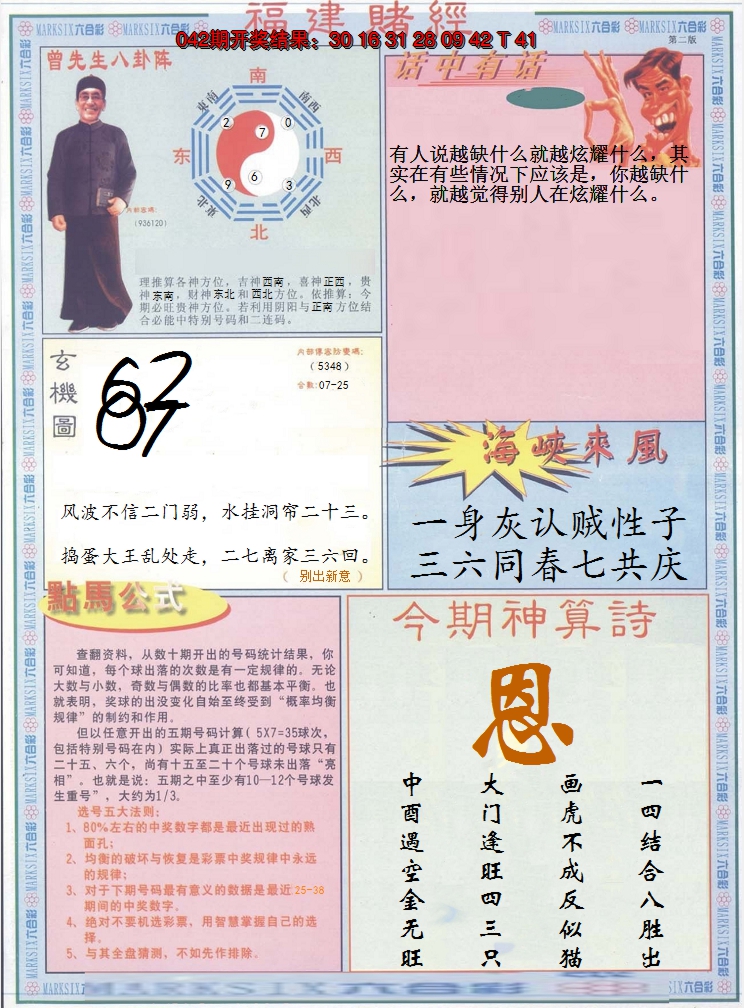 福建賭經
042期开奖结果：30 16 31 28 09 42 T 41
第二版
MARKSIX六合彩
曾先生八卦阵
南
東南
南西
2
7
0
东
西
9
6
3
東北
北西
北
內部密碼:
(936120)
理推算各神方位，吉神西南，喜神正西，贵
神东南，财神东北和西北方位。依推算：今
期必旺贵神方位。若利用阴阳与正南方位结
合必能中特别号码和二连码。
话中有话
有人说越缺什么就越炫耀什么，其
实在有些情况下应该是，你越缺什
么，就越觉得别人在炫耀什么。
玄機圖
內部傳密防密碼:
(5348)
合數:07-25
风波不信二门弱，水挂洞帘二十三。
捣蛋大王乱处走，二七离家三六回。
（ 别出新意 ）
海峽來風
一身灰认贼性子
三六同春七共庆
點馬公式
查翻资料，从数十期开出的号码统计结果，你
可知道，每个球出落的次数是有一定规律的。无论
大数与小数，奇数与偶数的比率也都基本平衡。也
就表明，奖球的出没变化自始至终受到“概率均衡
规律”的制约和作用。
但以任意开出的五期号码计算( 5X7=35球次，
包括特别号码在内）实际上真正出落过的号球只有
二十五、六个，尚有十五至二十个号球未出落“亮
相”。也就是说：五期之中至少有10—12个号球发
生重号”，大约为1/3。
选号五大法则：
1、80%左右的中奖数字都是最近出现过的熟
面孔；
2、均衡的破坏与恢复是彩票中奖规律中永远
的规律；
3、对于下期号码最有意义的数据是最近25-38
期间的中奖数字。
4、绝对不要机选彩票，用智慧掌握自己的选
择。
5、与其全盘猜测，不如先作排除。
今期神算詩
恩
一四结合八胜出
画虎不成反似猫
大门逢旺四三只
申酉遇空金无旺